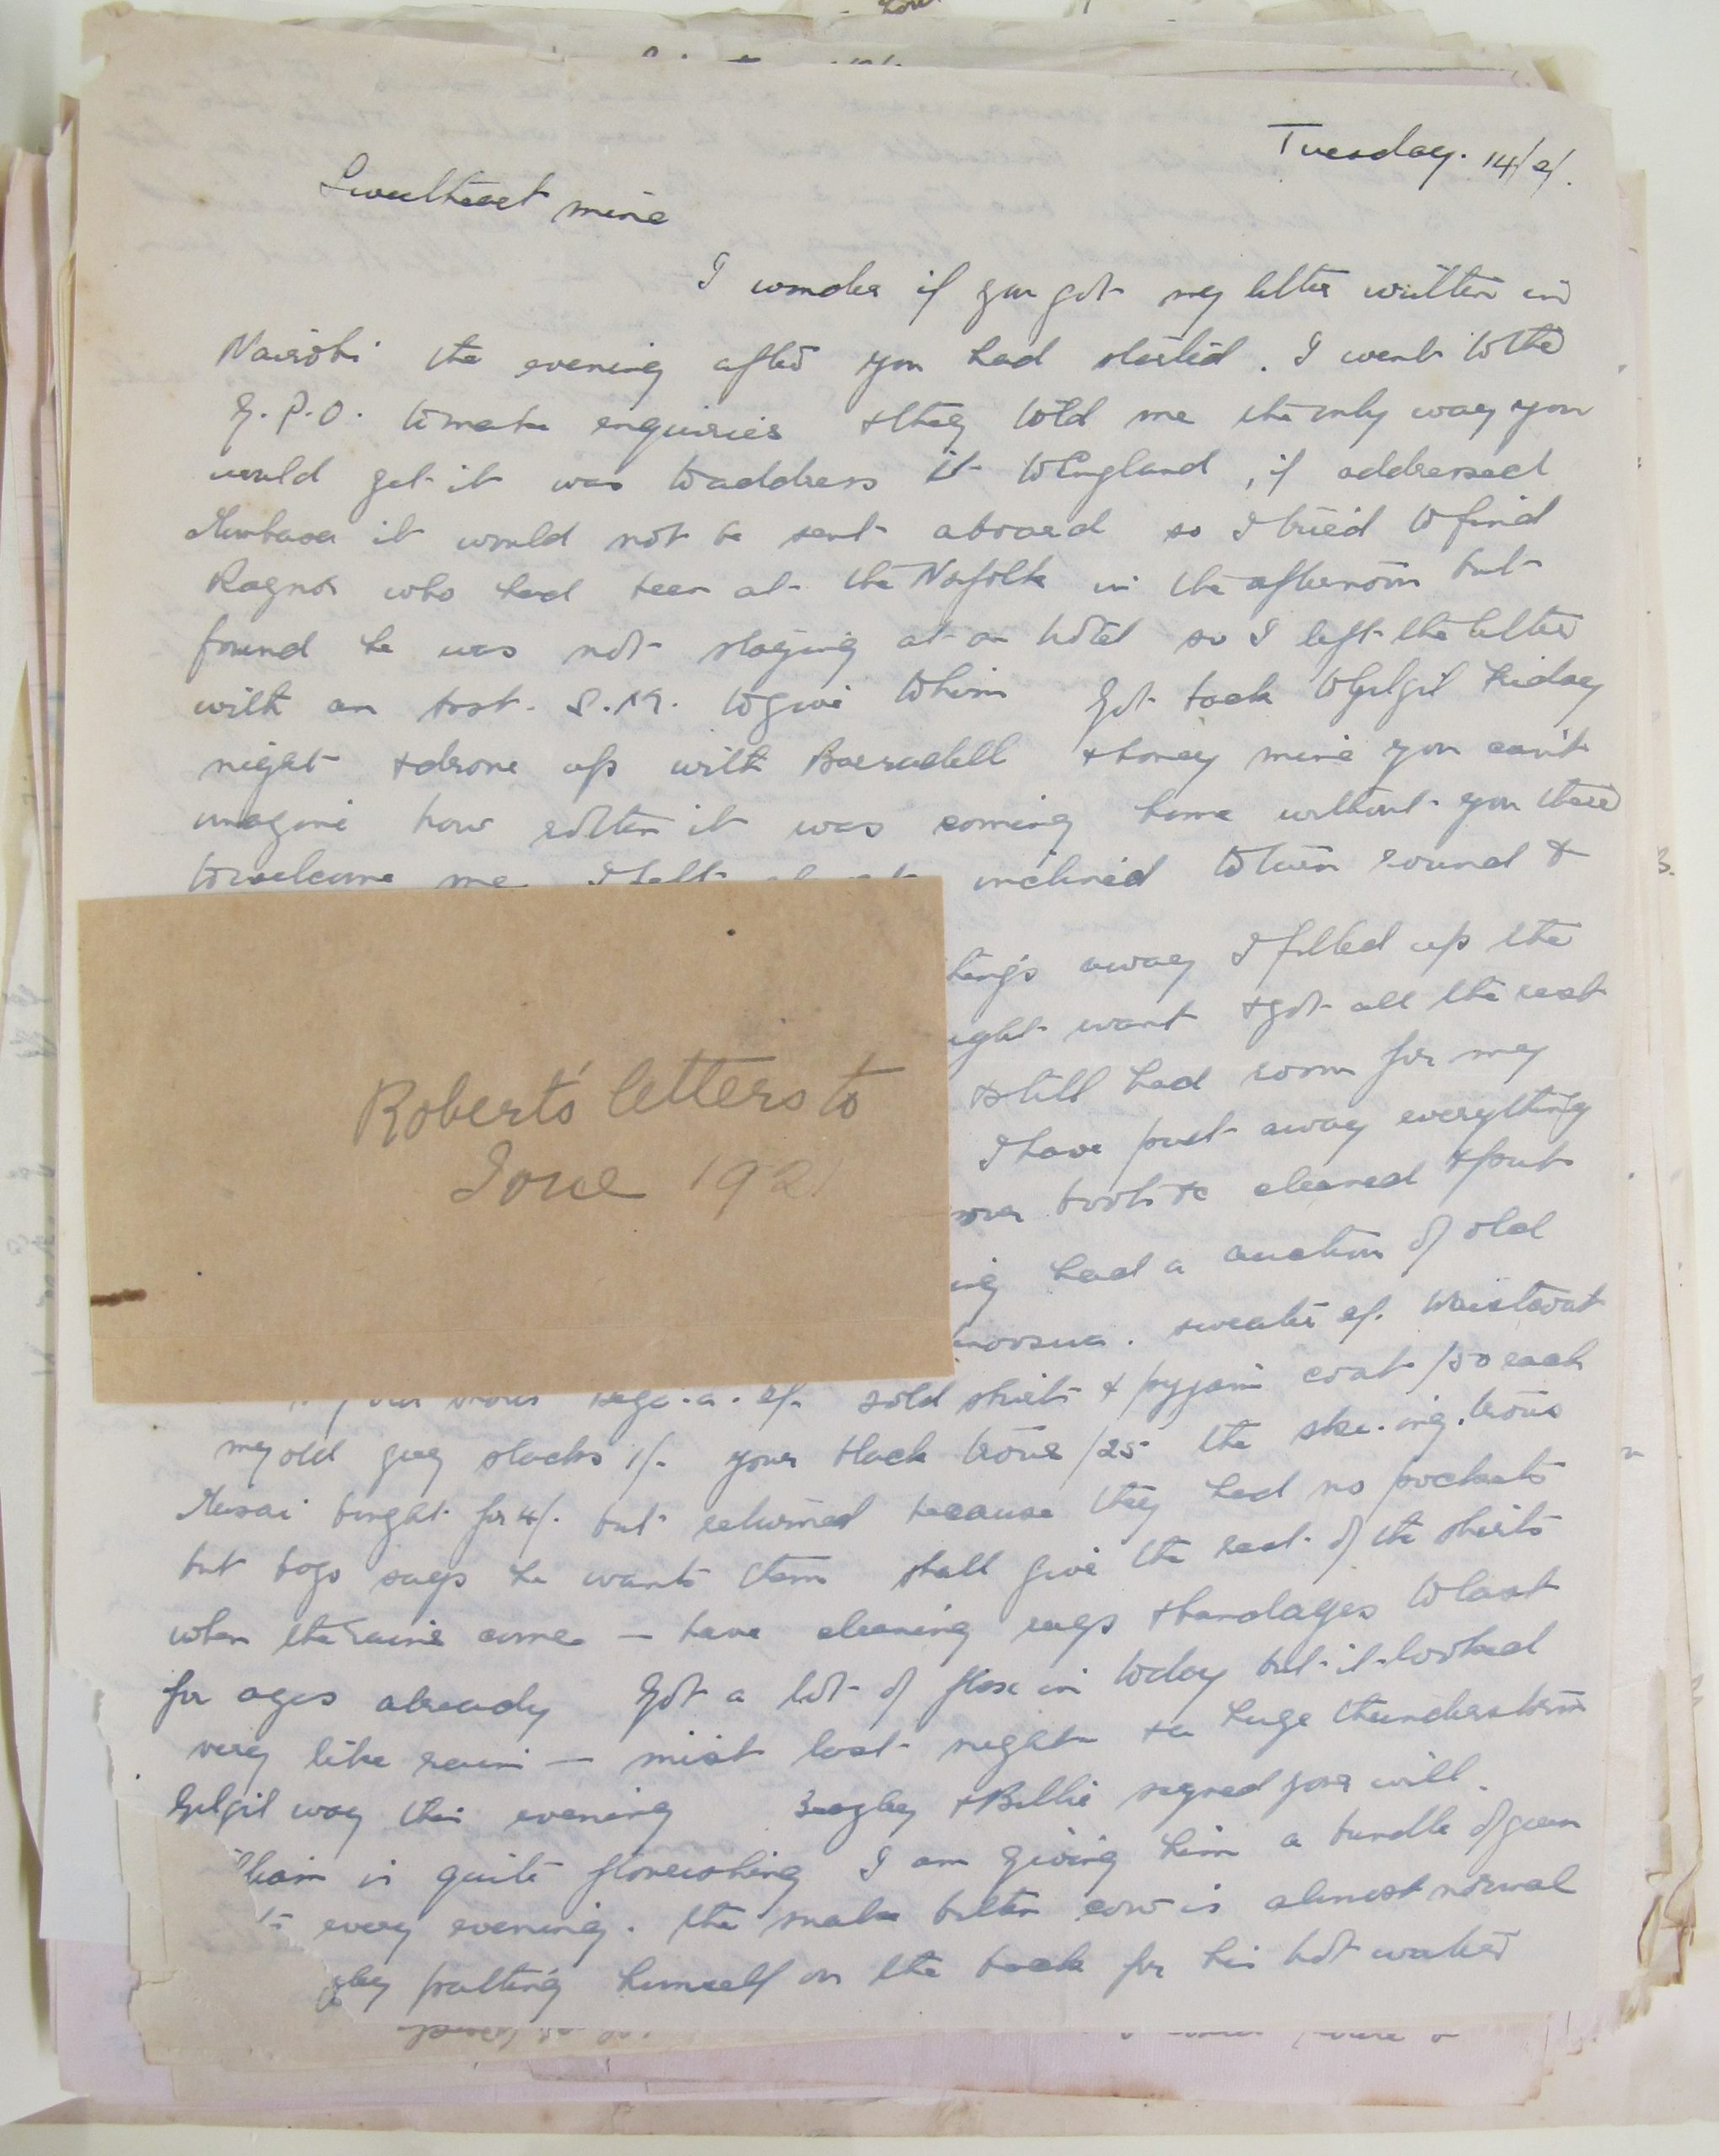 Tuesday. 14/2/.
Sweetheart mine
I wonder if you got my letter written in
Nairobi the evening after you had started. I went to the
G.P.O. to make enquiries & they told me the only way you
would get it was to address it to England, if addressed
Mombasa it would not be sent aboard so I tried to find
Ragnor who had been at the Norfolk in the afternoon but
found he was not staying at an hotel so I left the letter
with an to give to him Got back to Gilgil Friday
night & drove up with Barradell & honey mine you can't
imagine how rotten it was coming home without you there
to welcome me I felt inclined to turn round &
things away I filled up the
might want & got all the rest
& still had room for my
I have put away everything
boots &c cleaned & put
had a auction of old
sweater waistcoat
sold shirts & pyjama coat /50 each
my old grey slacks 1/- your black trous /25 the ske-ing trous
Masai bought for 4/- but returned because they had no pockets
but boys says he wants them shall give the rest of the shirts
when the rains come — have cleaning rags & bandages to last
for ages already Got a lot of flax in today but it looked
very like rain — mist last night & a huge thunderstorm
Gilgil way this evening & Billie signed your will.
is quite flourishing I am giving him a bundle of green
every evening. The snake bitten cow is almost normal
patting himself on the back for his hot water
Robert's letters to
Ione 1921